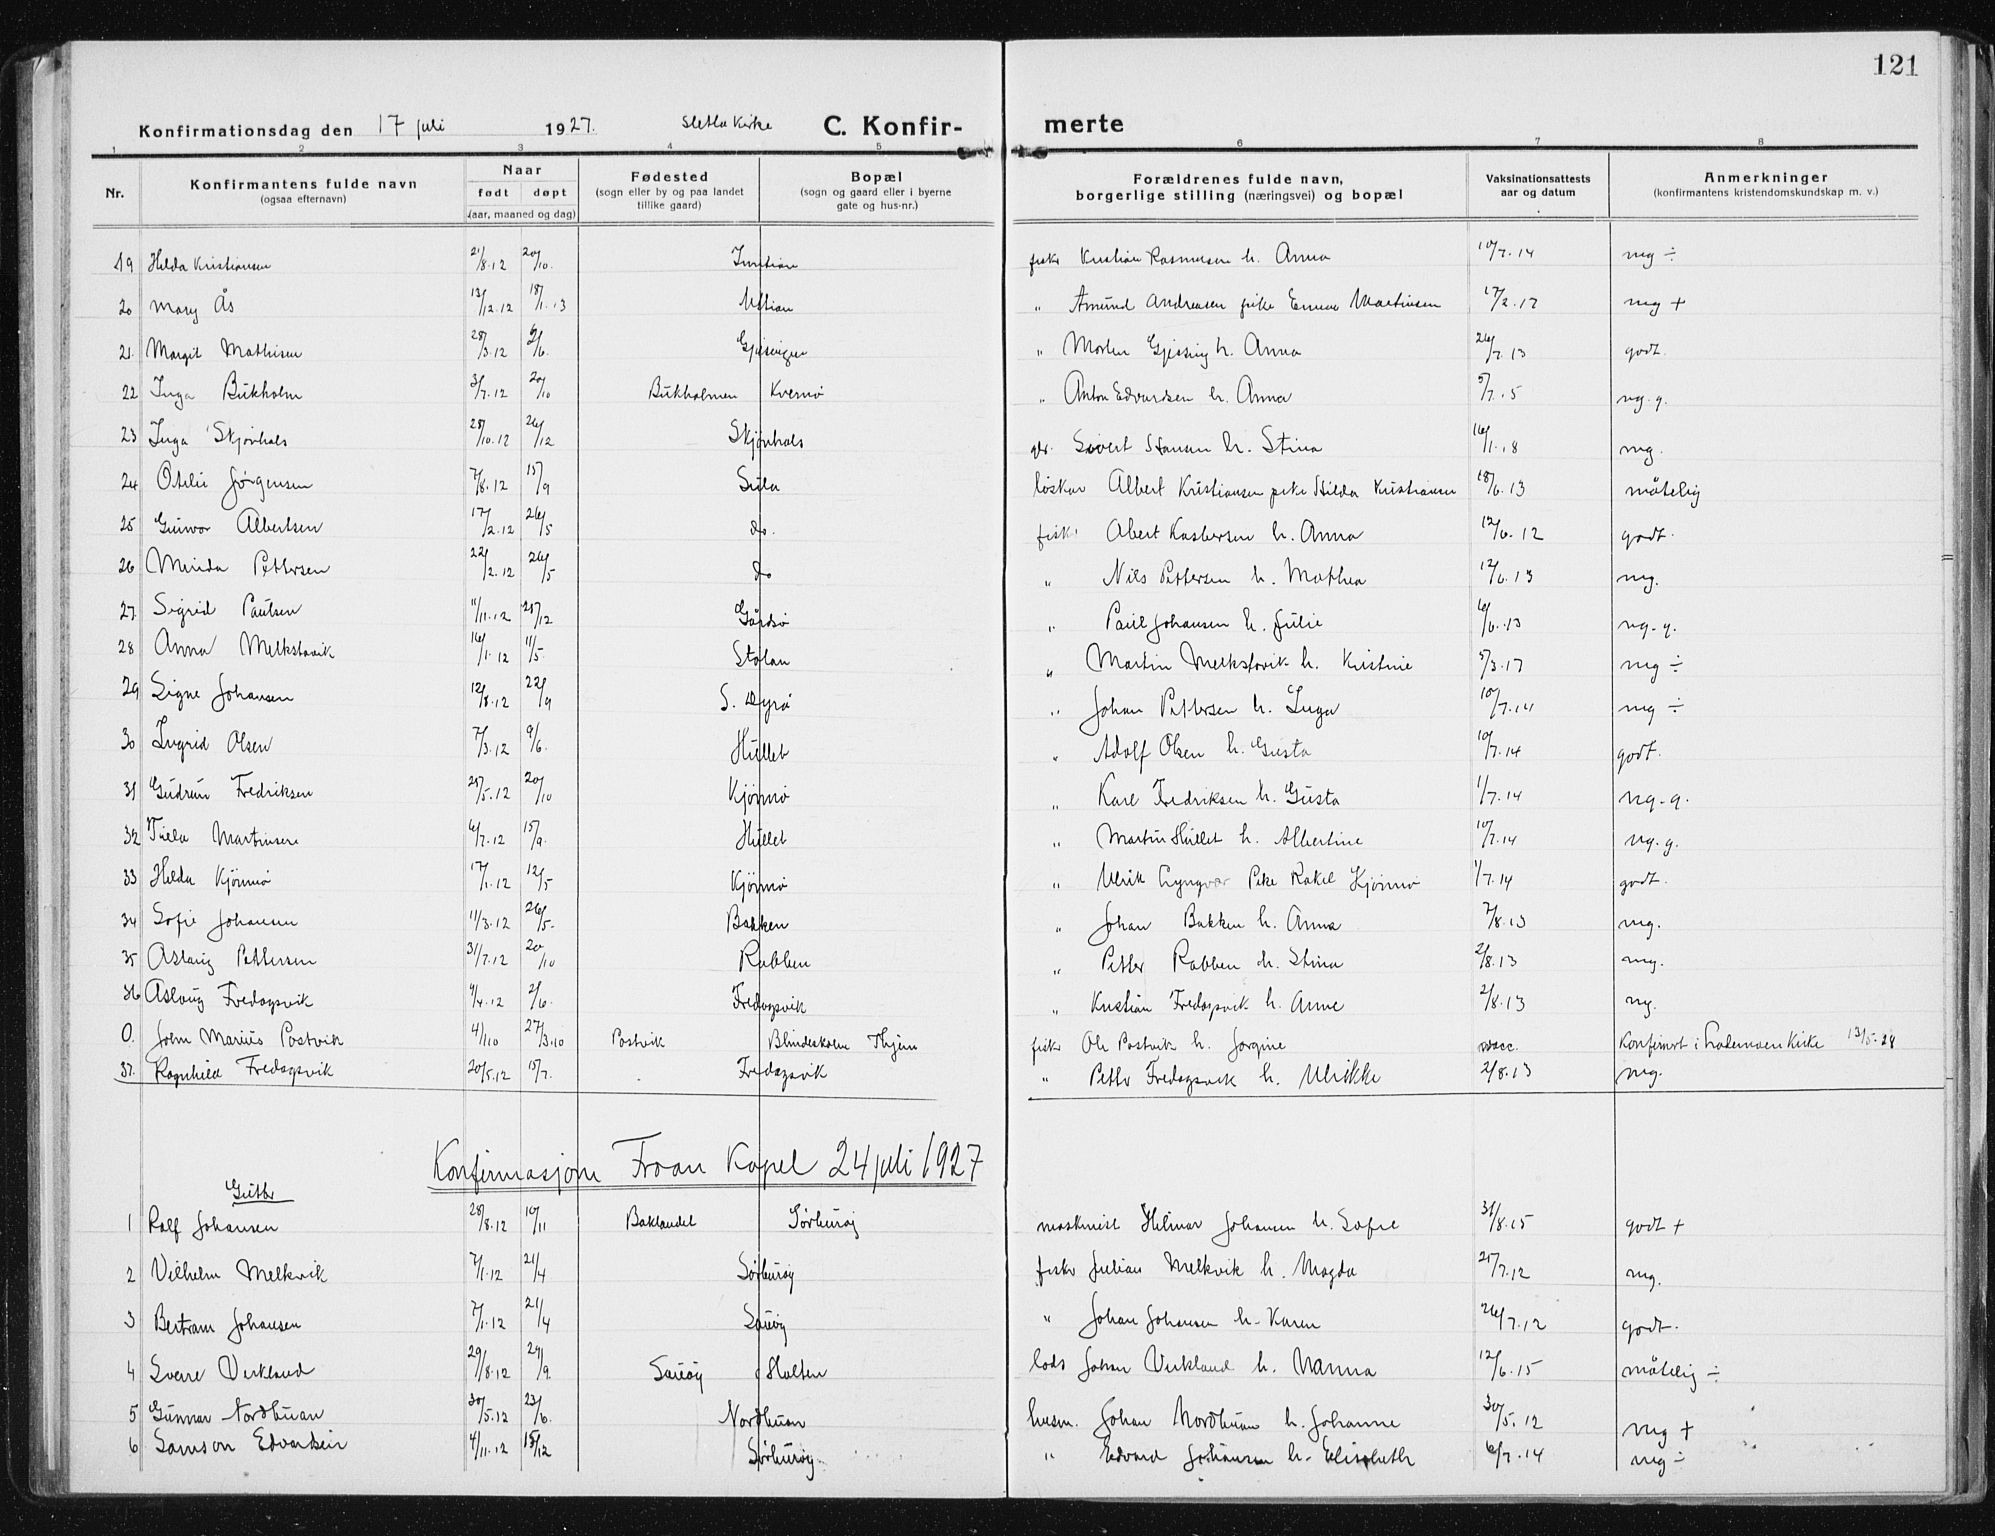 121
Konfirmationsdag den 17 juli 1927. Sletta Kirke C. Konfir- merte
1 2 3 4 5 6 7 8
Nr. Konfirmantens fulde navn (ogsaa efternavn) Naar født døpt (aar, maaned og dag) Fødested (sogn eller by og paa landet tillike gaard) Bopæl (sogn og gaard eller i byerne gate og hus-nr.) Forældrenes fulde navn, borgerlige stilling (næringsvei) og bopæl Vaksinationsattests aar og datum Anmerkninger (konfirmantens kristendomskundskap m. v.)
19 Hilda Kristiansen 21/8.12 20/10. fisker Kristian Rasmussen h. Anna 10/7.14 mg ÷
20 Mary Ås 13/12.12 18/1.13 Uttian " Amund Andreasen pike Emma Martinsen 17/2.17 mg +
21. Margit Mathisen 28/3.12 2/6. " Morten Gjessing h. Anna 26/7.13 godt.
22 Inga Bukholm 3/7.12 20/10 Bukholmen Kvernø " Anton Edvardsen h. Anna 5/7.15 ng. g.
23 Inga Skjønhals 28/10.12 26/12 Skjønhals Sivert Hansen h. Stina 16/1.18 mg.
24 Otelie Jørgensen 7/8.12 15/9 Sula løskar Albert Kristiansen pike Hilda Kristiansen 18/6.13 måtelig
25 Gunvor Albertsen 17/2.12 26/5 do. fisk. Abert Kasbersen h. Anna 12/6.12 godt.
26 Minda Pettersen 22/2.12 26/5 do " Nils Pettersen h. Mathea 12/6.13 mg.
27. Sigrid Paulsen 11/11.12 28/12 Gårdsø " Paul Johansen h. Julie 6/6.13 ng. g.
28 Anna Melkstavik 16/1.12 11/5. Stølan " Martin Melkstavik h. Kristine 5/3.17 mg ÷
29 Signe Johansen 12/8.12 22/9 S. Dyrø " Johan Pettersen h. Inga 10/7.14 mg ÷
30 Ingrid Olsen 7/3.12 9/6. Hullet " Adolf Olsen h. Gusta 10/7.14 godt.
31 Gudrun Fredriksen 25/5.12 20/10 Kjønnø " Karl Fredriksen h. Gusta 1/7.14 ng. g.
32 Tilla Martinsen 6/7.12 15/9. Hullet " Martin Hullet h. Albertine 10/7.14 ng. g.
33 Hilda Kjønnø 17/1.12 12/5 Kjønnø " Ulrik Lyngvær Pike Rakel Kjønnø 1/7.14 godt.
34 Sofie Johansen 11/3.12 26/5. Bakken " Johan Bakken h. Anna 7/8.13 mg.
35 Aslaug Pettersen 31/7.12 20/10 Rabben " Petter Rabben h. Stina 2/8.13 mg.
36 Aslaug Fredagsvik 4/4.12 2/6. Fredagsvik " Kristian Fredagsvik h. Anne 2/8.13 ng.
0. John Marius Postvik 4/1 10 27/3.10 Postvik Blindeskolen Thjem fisker Ole Postvik h. Jorgine vacc. Konfirmert i Lademoen Kirke 13/5.28
37. Ragnhild Fredagsvik 20/5.12 15/7. Fredagsvik " Petter Fredagsvik h. Ulrikke 2/8.13 mg.
Konfirmasjon Froan Kapel 24 juli 1927
Gutter
1 Ralf Johansen 28/8.12 10/11 Baklandet Sørburøy maskinist Hilmar Johansen h. Sofie 31/8.15 godt +
2 Vilhelm Melkvik 7/1.12 21/4 Sørburøy fisker Julian Melkvik h. Magda 25/7.12 mg.
3 Bertram Johansen 7/1.12 21/4 Sauøy " Johan Johansen h. Karen 26/7.12 godt.
4 Sverre Virkland 29/8.12 29/9. Sauøy Halten lods Johan Virkland h. Nanna 12/6.15 måtelig ÷
5 Gunnar Nordbuan 30/5.12 23/6. Nordbuan husm. Johan Nordbuan h. Johanne 30/5.12 mg +
6 Samson Edvardsen 4/11.12 15/12 Sørburøy " Edvard Johansen h. Elisabeth 6/7.14 mg ÷